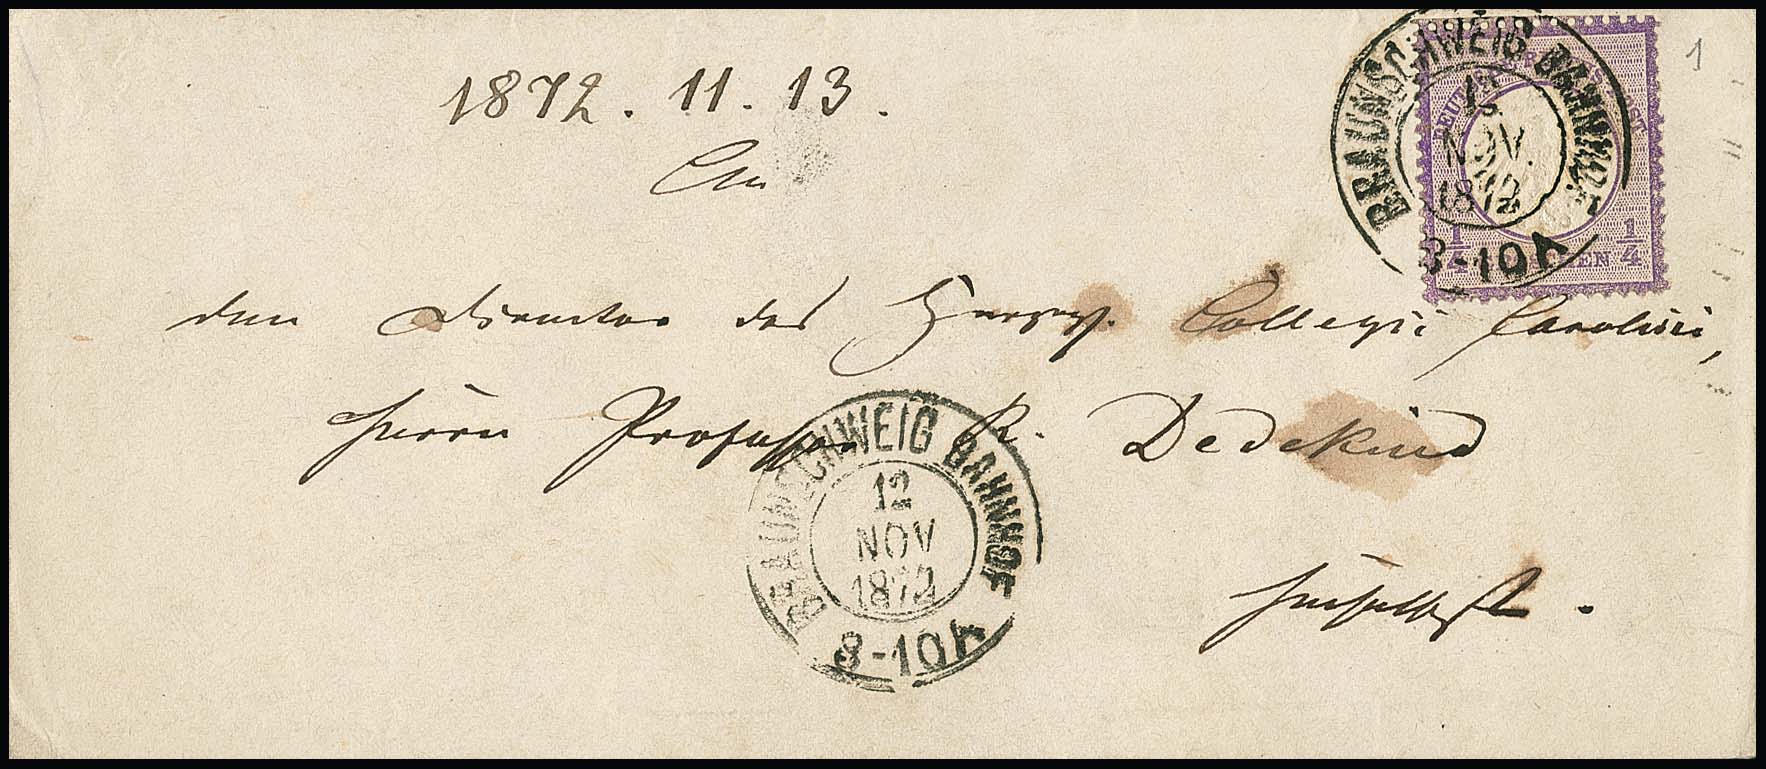 1872. 11. 13.
An
den Director des Herzogl. Collegii Carolini,
Herrn Professor R. Dedekind
hierselbst.
BRAUNSCHWEIG BAHNHOF
12
NOV.
1872
8-10A
1/4 1/4
1
BRAUNSCHWEIG BAHNHOF
12
NOV
1872
8-10A